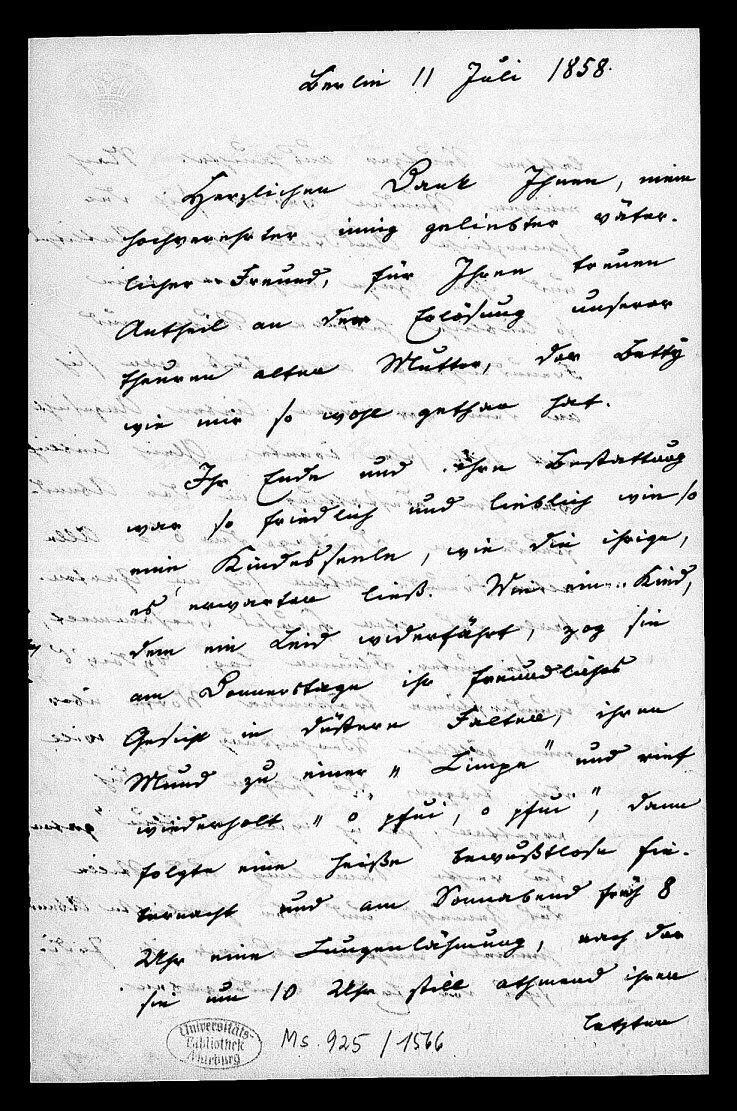 Berlin 11 Juli 1858.
Herzlichen Dank Ihnen, mein
hochverehrter innig geliebter väter-
licher Freund, für Ihren treuen
Antheil an der Erlösung unserer
theuren alten Mutter, der Betty
wie mir so wohl gethan hat.
Ihr Ende und ihre Bestattung
war so friedlich und lieblich wie so
eine Kindesseele, wie die ihrige,
es erwarten ließ. Wie ein Kind,
dem ein Leid widerfährt, zog sie
am Donnerstage ihr freundliches
Gesicht in düstere Falten, ihren
Mund zu einer „Limpe" und rief
wiederholt „o pfui, o pfui", dann
folgte eine heiße bewußtlose Fie-
bernacht und am Sonnabend früh 8
Uhr eine Lungenlähmung, nach der
sie um 10 Uhr still athmend ihren
letzten
Universitäts-
Bibliothek
Marburg
Ms. 925/1566